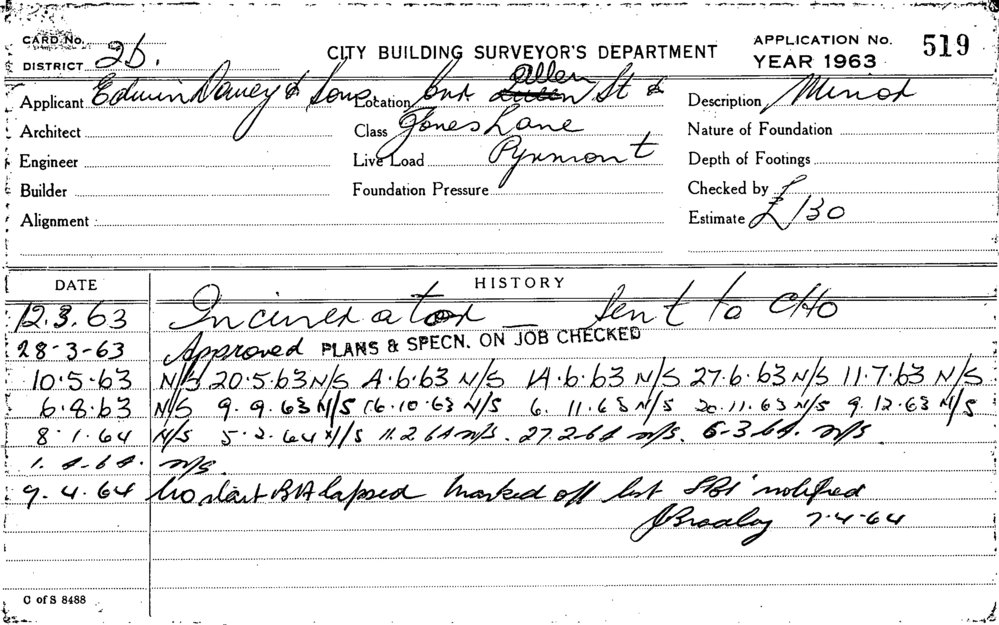 CARD No.
DISTRICT 2b.
CITY BUILDING SURVEYOR'S DEPARTMENT
APPLICATION No. 519
YEAR 1963
Applicant Edwin Davey & Sons Location Cnr Allen St &
Description Minor
Architect
Class Jones Lane
Nature of Foundation
Engineer
Live Load Pyrmont
Depth of Footings
Builder
Foundation Pressure
Checked by
Alignment
Estimate £130
DATE HISTORY
12.3.63 Incinerator — Sent to CHO
28-3-63 Approved PLANS & SPECN. ON JOB CHECKED
10.5.63 N/S 20.5.63 N/S 4.6.63 N/S 14.6.63 N/S 27.6.63 N/S 11.7.63 N/S
6.8.63 N/S 9.9.63 N/S 16.10.63 N/S 6.11.63 N/S 20.11.63 N/S 9.12.63 N/S
8.1.64 N/S 5.2.64 N/S 11.2.64 N/S. 27.2.64 N/S. 6-3.64. N/S.
1.4.64. N/S.
9.4.64 No start BA lapsed marked off list SBI notified
7.4.64
C of S 8488